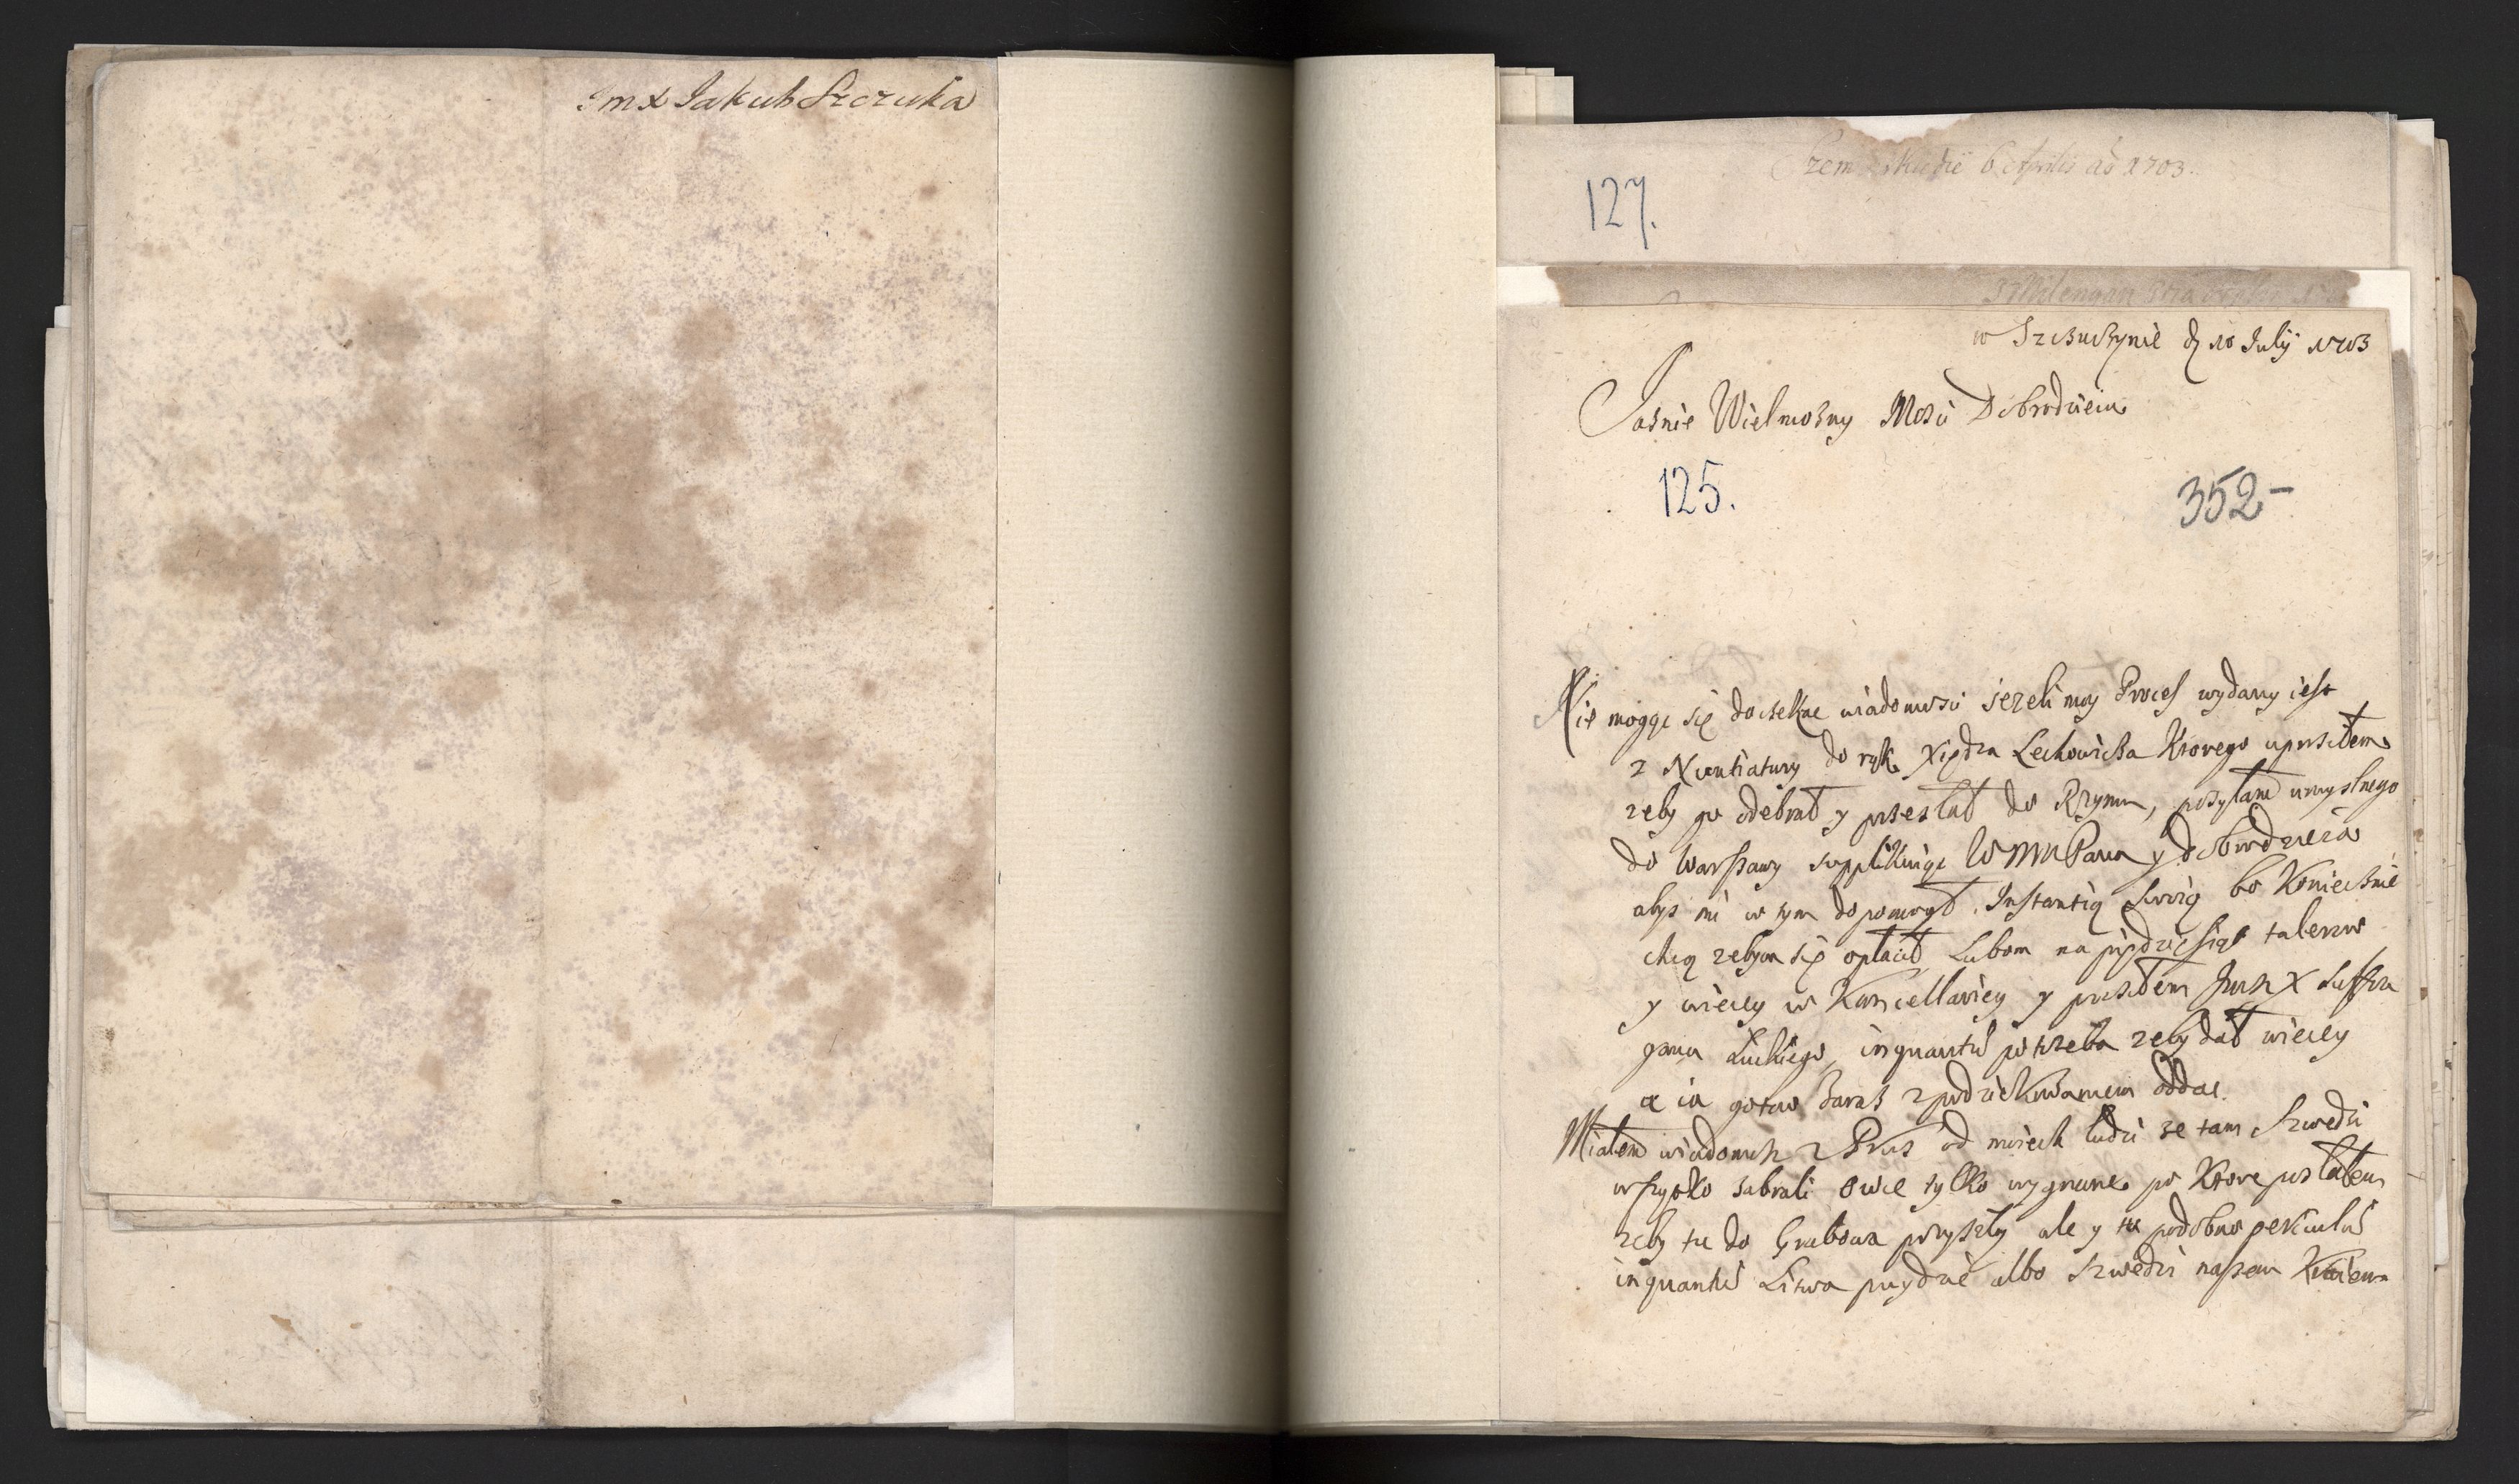 Jmx Jakub Szczuka
6 Aprilis ao 1703.
127.
w Szczuczynie d 10 Julij 1703
Jasnie Wielmozny Mosci Dobrodzieiu
125.
352-
Nie mogąc się doczekac wiadomosci jezeli moy Proces wydany iest
z Nuntiatury do rąk Xiędza Lechowicza Ktorego uprosiłem
zeby go odebrał y przesłał do Rzymu, posyłam umyslnego
do Warszawy supplikuiąc WMM Pana y dobrodzieia
abys mi w tym dopomogł Instantią swoią bo Koniecznie
chcą zebym się opłacił Lubom na pięcdziesiąt talerow
y wiecey w Kancellariey y prosiłem X Suffra
gana Luckiego, inquantu potrzeba zeby dał wiecey
a ia gotow zaraz z podziekowaniem oddac.
Miałem wiadomosc z Prus od moiech ludzi ze tam Szwedzi
wszystko zabrali owce tylko wygnane po Ktore posłałem
zeby tu do Grabowa przyszły ale y tu podobno periculu
inquantu Litwa przydzie albo Szwedzi naszem